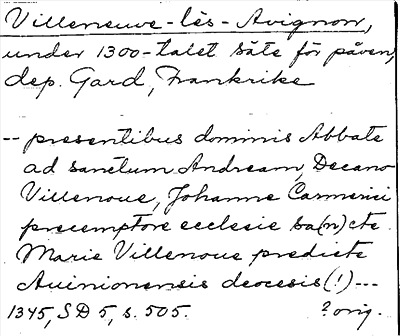 Villeneuve-lès-Avignon,
under 1300-talet säte för påven,
dep. Gard, Frankrike
-- presentibus dominis Abbate
ad sanctum Andream, Decano
Villenoue, Johanne Carmerici
preceptore ecclesie sa(n)cte
Marie Villenoue predicte
Auinionensis deocesis (!) ---
1345, SD 5, s. 505. ? orig.